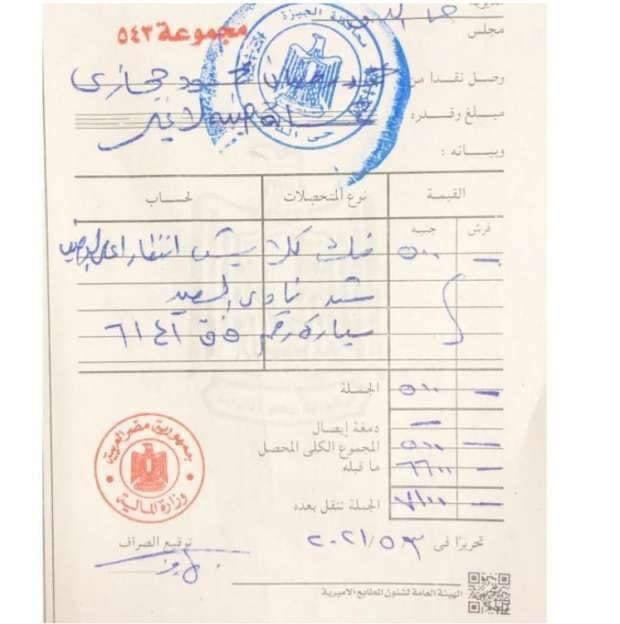 مجموعة ٥٤٣
محافظة الجيزة
حى الدقى
مجلس
وصل نقدا من محمود حجازى
مبلغ وقدره جنيه لا غير
وبيانه :
القيمة نوع المتحصلات لحساب
قرش جنيه
— ٥٠٠ فك كلابش انتظار اعلى
شد نادى الصيد
سيارة رقم
الجملة ٥٠٠ —
دمغة إيصال —
المجموع الكلى المحصل ٥٠٠ —
ما قبله ٦٦٠٠ —
الجملة تنقل بعده ٧١٠٠ —
تحريرًا فى ٢٠٢١/٥/٣
توقيع الصراف
جمهورية مصر العربية
وزارة المالية
الهيئة العامة لشئون المطابع الأميرية